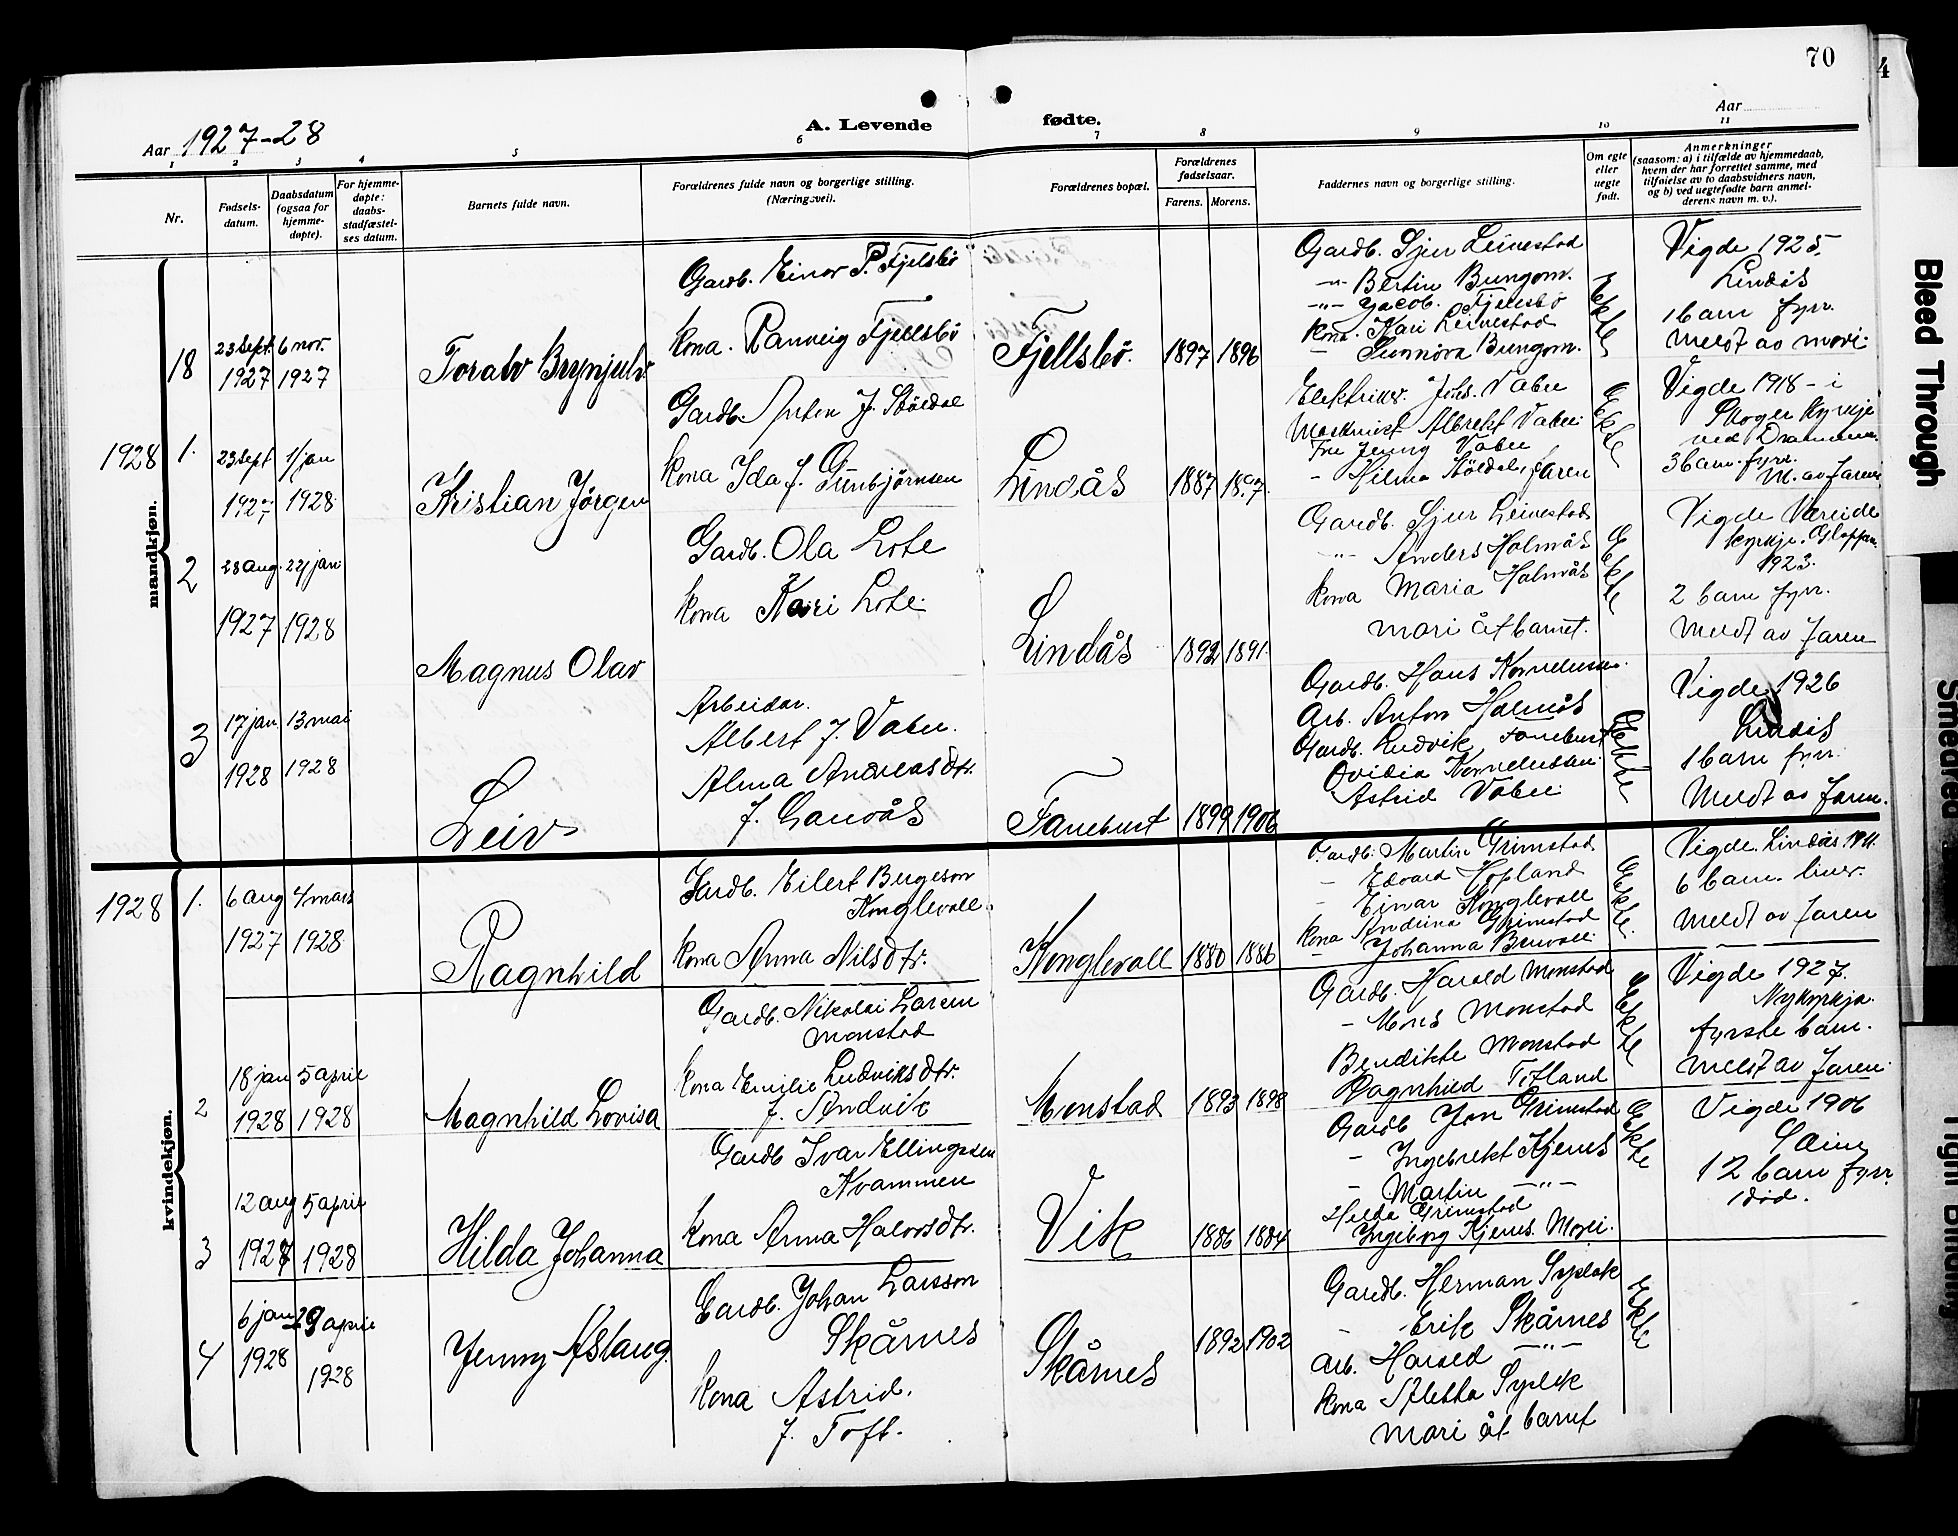 70
4
Aar 1927-28
A. Levende fødte.
Aar
1 2 3 4 5 6 7 8 9 10 11
Nr.
Fødsels-
datum.
Daabsdatum
(ogsaa for
hjemme-
døpte).
For hjemme-
døpte:
daabs-
stadfæstel-
ses datum.
Barnets fulde navn.
Forældrenes fulde navn og borgerlige stilling.
(Næringsvei).
Forældrenes bopæl.
Forældrenes
fødselsaar.
Farens. Morens.
Faddernes navn og borgerlige stilling.
Om egte
eller
uegte
født.
Anmerkninger
(saasom: a) i tilfælde av hjemmedaab,
hvem der har forrettet samme, med
tilføielse av to daabsvidners navn,
og b) ved uegtefødte barn anmel-
derens navn m. v.).
mandkjøn.
18
23 Sept. 1927
6 nov. 1927
Toralv Brynjulv
Gardb. Einar P. Fjelsbö
Kona. Ranveig Fjellsbö
Fjellsbö.
1897 1896
Gardb. Sjur Leivestad
-"- Bertin Bungom.
-"- Jacob. Fjellsbö
Kona. Kari Leivestad
- Sunnöva Bungom.
Ekte
Vigde 1925.
Lindås
1 barn fyrr.
Meldt av mori.
1928
1.
23 Sept 1927
1/jan 1928
Kristian Jörgen
Gardb. Anton J. Stöldal
Kona Ida f. Gunbjörnsen
Lindås
1887 1897.
Elektriker. Johs. Vabu
Maskinist Albrekt Vabu
Fru Jenny Vabu
- Hilma Stöldal, faren
Ekte
Vigde 1918 - i
Skoger Kyrkje
ved Drammen.
3 barn fyrr.
M. av Faren
2
28 aug. 1927
22/jan 1928
Magnus Olav
Gardb. Ola Lote
Kona Kari Lote.
Lindås
1892 1891.
Gardb. Sjur Leivestad
-"- Anders Holmås
Kona Maria Holmås
Mori åt barnet.
Ekte
Vigde Vereide
kyrkje. Gloppen
1923.
2 barn fyrr.
Meldt av faren
3
17 jan 1928
13 mai 1928
Leiv
Arbeidar.
Albert J. Vabu.
Alma Andreasdtr.
f. Landås
Fanebust
1899 1906
Gardb. Hans Korneliussen.
Arb. Anton Holmås
Gardb. Ludvik Fanebust
Ovidia Korneliussen
Astrid Vabu
Ekte
Vigde 1926
Lindås
1 barn fyrr.
Meldt av faren.
kvindekjøn.
1928
1.
6 aug 1927
4 mars 1928
Ragnhild
Gardb. Eilert Bergeson
Konglevoll
Kona Anna Nilsdtr.
Konglevoll
1880 1886
Gardb. Martin Grimstad
- Edvard Hopland
- Einar Konglevoll
Kona Andrina Grimstad
- Johanna
Ekte.
Vigde. Lindås. 1911.
6 barn. liver.
Meldt av Faren
2
18 jan 1928
5 april 1928
Magnhild Lovisa
Gardb. Nikolai Larsen
Monstad
Kona Emilie Ludviksdtr.
f. Andvik
Monstad
1893 1898
Gardb. Harald Monstad
- Mons Monstad
Bendikte Monstad
Ragnhild Tofland
Ekte
Vigde 1927.
Nykyrkja.
fyrste barn.
Meldt av Faren
3
12 aug 1927
5 april 1928
Hilda Johanna
Gardb Ivar Ellingsen
Kvammen
Kona Anna Halvorsdtr.
Vik
1886 1884
Gardb Jon Grimstad
- Ingebrekt Kjenes
- Martin -"-
Helda Grimstad
Ingeborg Kjenes. Mori.
Ekte
Vigde 1906
12 barn fyrr.
1 död.
4
6 jan 1928
29 april 1928
Jenny Aslaug.
Gardb. Johan Larsson
Skårnes
Kona Astrid.
f. Toft.
Skårnes
1892 1902
Gardb. Herman Syslak
- Erik Skårnes
Arb. Harald -"-
Kona Aletta Syslak
Mori åt barnet
Ekte
Bleed Through
Tight Binding